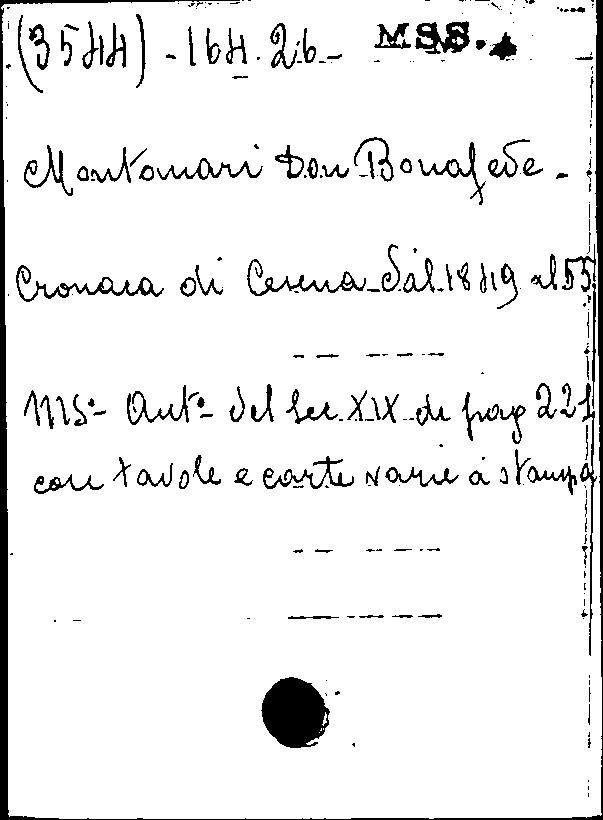 (3544) - 164. 26 - MSS.
Montanari Don Bonafede -
Cronaca di Cesena dal 1849 al 55
MSº Autº del Sec XIX di pag 221
con tavole e carte varie a stampa